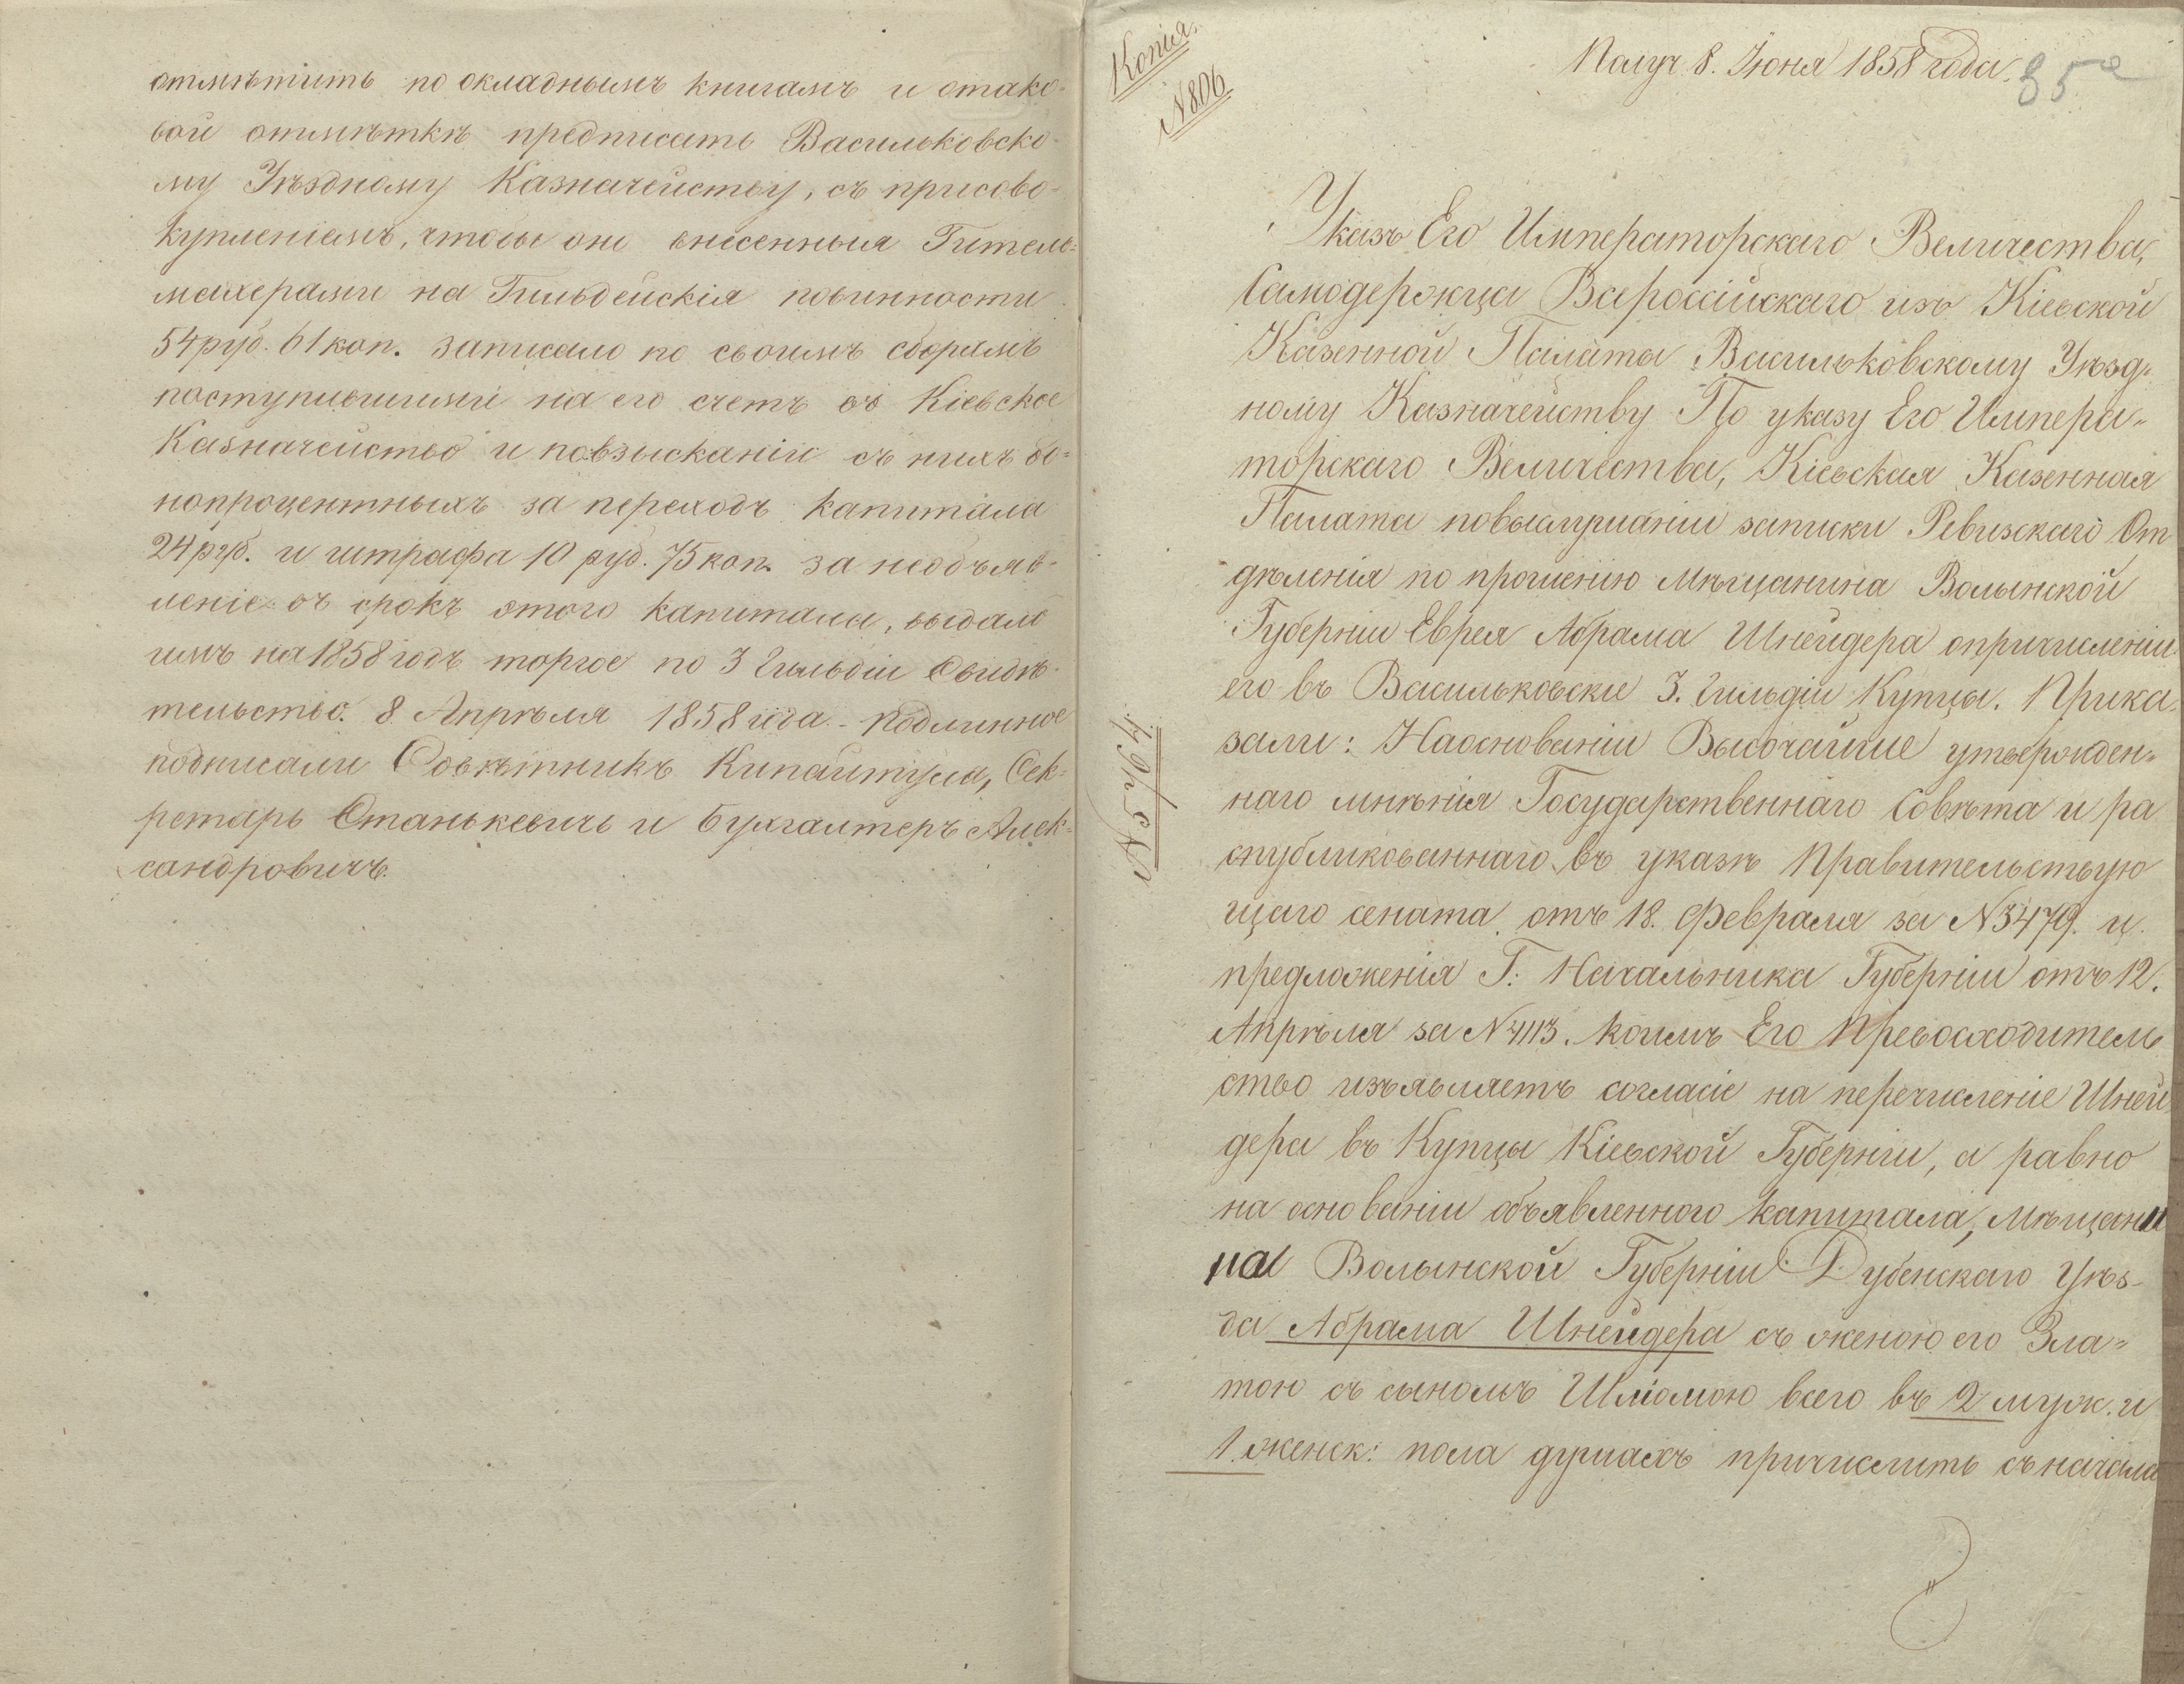 отмѣтить по окладнымъ книгамъ и отако-
вой отмѣткѣ предписать Васильковско-
му Уѣздному Казначейству, съ присово-
купленіемъ, чтобы оно внесенныя Гитель-
махерами на Гильдейскія повинности
54 руб. 61 коп. записало по своимъ сборамъ
поступившими на его счетъ въ Кіевское
Казначейство и повзысканіи съ нихъ
нопроцентныхъ за переходъ капитала
24 руб. и штрафа 10 руб. 75 коп. за необъяв-
леніе въ срокъ этого капитала, выдало
имъ на 1858 годъ торгое по 3 Гильдіи Свидѣ-
тельство. 8 Апрѣля 1858 года. - Подлинное
подписали Совѣтникъ Сек-
ретарь Станькевичъ и Бухгалтеръ Алек-
сандровичъ.
Копія.
N 806
Получ. 8. Іюня 1858 года.
85
Указъ Его Императорскаго Величества,
Самодержца Всероссійскаго изъ Кіевской
Казенной Палаты Васильковскому Уѣзд-
ному Казначейству По указу Его Импера-
торскаго Величества, Кіевская Казенная
Палата повыслушаніи записки Ревизскаго От
дѣленія по прошенію Мѣщанина Волынской
Губерніи Еврея Абрама Шнейдера опричисленіи
его въ Васильковскіе 3. Гильдіи Купцы. Прика-
зали: Наоснованіи Высочайше утвержден-
наго мнѣнія Государственнаго Совѣта и ра
спубликованнаго въ указѣ Правительствую
щаго сената отъ 18. Февраля за N 3479. и
предложенія Г. Начальника Губерніи отъ 12.
Апрѣля за N 4113. коимъ Его Превосходитель
ство изъявляетъ согласіе на перечисленіе Шней
дера въ Купцы Кіевской Губерніи, а равно
на основаніи объявленного капитала, Мѣщани
на Волынской Губерніи Дубенскаго Уѣз-
да Абрама Шнейдера съ женою его Зла-
тою съ сыномъ Шліомою всего въ 2 муж. и
1. женск: пола душахъ причислить съ начала